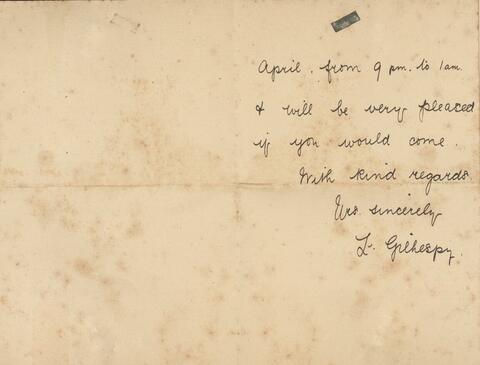 April, from 9 pm. to 1am.
& will be very pleased
if you would come.
With kind regards.
Yrs. sincerely
L. Gilhespy.